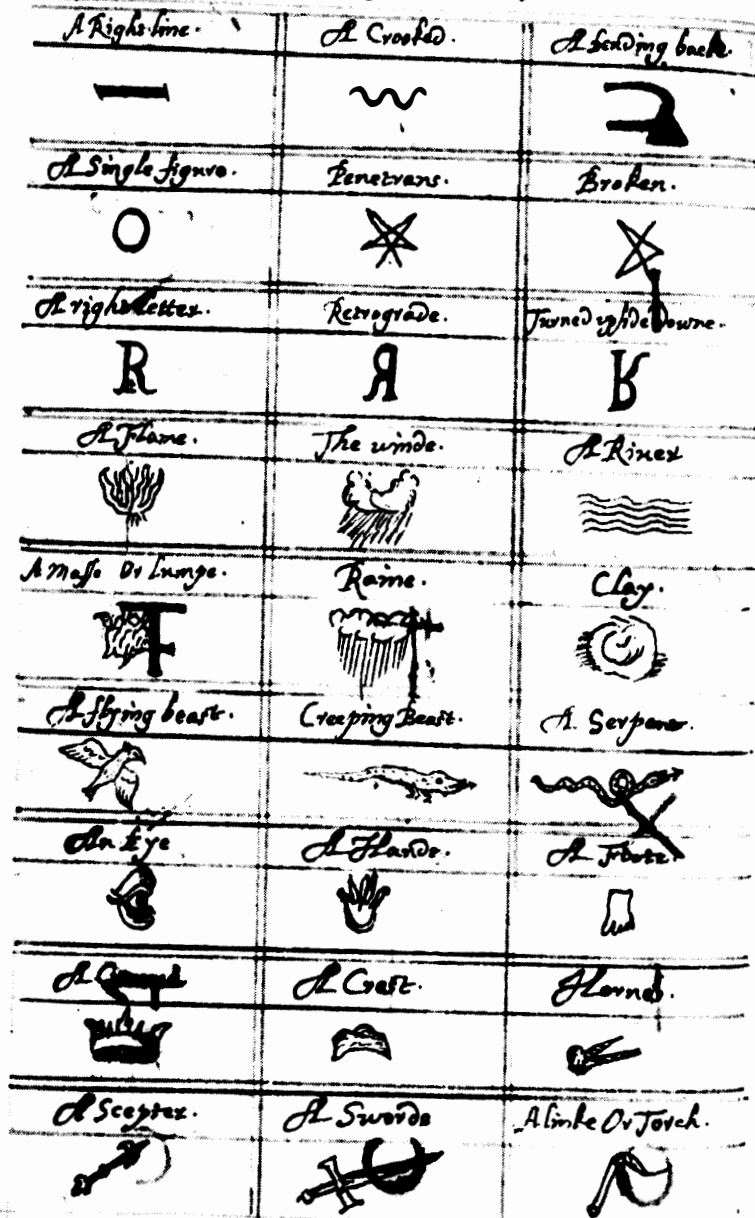 A Right line. A Crooked. A bending back.
A Single figure. Penetrans. Broken.
O
A right letter. Retrograde. Turned upside Downe.
R R R
A Flame. The winde. A River
A Masse Or Lumpe. Raine. Clay.
A flying beast. Creeping Beast. A Serpent.
An Eye A Hande. A Foote.
A A Crest. Hornes.
A Scepter. A Sworde A linke Or Torch.